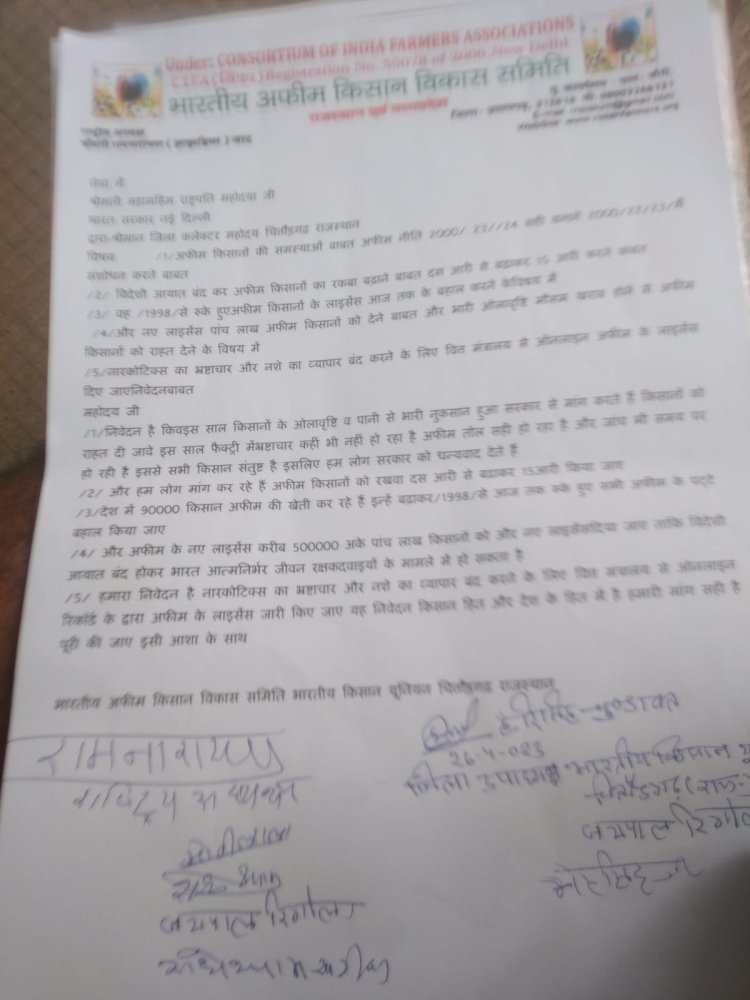 Under: CONSORTIUM OF INDIA FARMERS ASSOCIATIONS
CIFA(सिफा)Registration No. 05078 of 2006,New Delhi
भारतीय अफीम किसान विकास समिति
राजस्थान एवं मध्यप्रदेश
जिला-
राष्ट्रीय अध्यक्ष
सेवा में
श्रीमती महामहिम राष्ट्रपति महोदया जी
भारत सरकार नई दिल्ली
द्वारा-श्रीमान जिला कलेक्टर महोदय चित्तौड़गढ़ राजस्थान
विषय /1/अफीम किसानों की समस्याओं बाबत अफीम नीति 2000/ 23//24 सही बनाने 2000/22/23/में
संशोधन करने बाबत
/2/ विदेशी आयात बंद कर अफीम किसानों का रकबा बढ़ाने बाबत दस आरी से बढ़ाकर 15 आरी करने बाबत
/3/ यह /1998/से रुके हुएअफीम किसानों के लाइसेंस आज तक के बहाल करने केविषय में
/4/और नए लाइसेंस पांच लाख अफीम किसानों को देने बाबत और भारी ओलावृष्टि मौसम खराब होने से अफीम
किसानों को राहत देने के विषय में
/5/नारकोटिक्स का भ्रष्टाचार और नशे का व्यापार बंद करने के लिए वित्त मंत्रालय से ऑनलाइन अफीम के लाइसेंस
दिए जाएनिवेदनबाबत
महोदय जी
/1/निवेदन है किवइस साल किसानों के ओलावृष्टि व पानी से भारी नुकसान हुआ सरकार से मांग करते हैं किसानों को
राहत दी जावे इस साल फैक्ट्री मेंभ्रष्टाचार कहीं भी नहीं हो रहा है अफीम तोल सही हो रहा है और जांच भी समय पर
हो रही है इससे सभी किसान संतुष्ट है इसलिए हम लोग सरकार को धन्यवाद देते हैं
/2/ और हम लोग मांग कर रहे हैं अफीम किसानों को रखवा दस आरी से बढ़ाकर 15आरी किया जाए
/3/देश में 90000 किसान अफीम की खेती कर रहे हैं इन्हे बढ़ाकर/1998/से आज तक रुके हुए सभी अफीम के पट्टे
बहाल किया जाए
/4/ और अफीम के नए लाइसेंस करीब 500000 अके पांच लाख किसानों को और नए लाइसेंसदिया जाए ताकि विदेशी
आयात बंद होकर भारत आत्मनिर्भर जीवन रक्षकदवाइयों के मामले में हो सकता है
/5/ हमारा निवेदन है नारकोटिक्स का भ्रष्टाचार और नशे का व्यापार बंद करने के लिए वित्त मंत्रालय से ऑनलाइन
रिकॉर्ड के द्वारा अफीम के लाइसेंस जारी किए जाए यह निवेदन किसान हित और देश के हित में है हमारी मांग सही है
पूरी की जाए इसी आशा के साथ
भारतीय अफीम किसान विकास समिति भारतीय किसान यूनियन चित्तौड़गढ़ राजस्थान
रामनारायण
राष्ट्रिय अध्यक्ष
26-4-023
जिला उपाध्यक्ष भारतीय किसान यू
चित्तौड़गढ़ (राज.
जयपाल
जयपाल